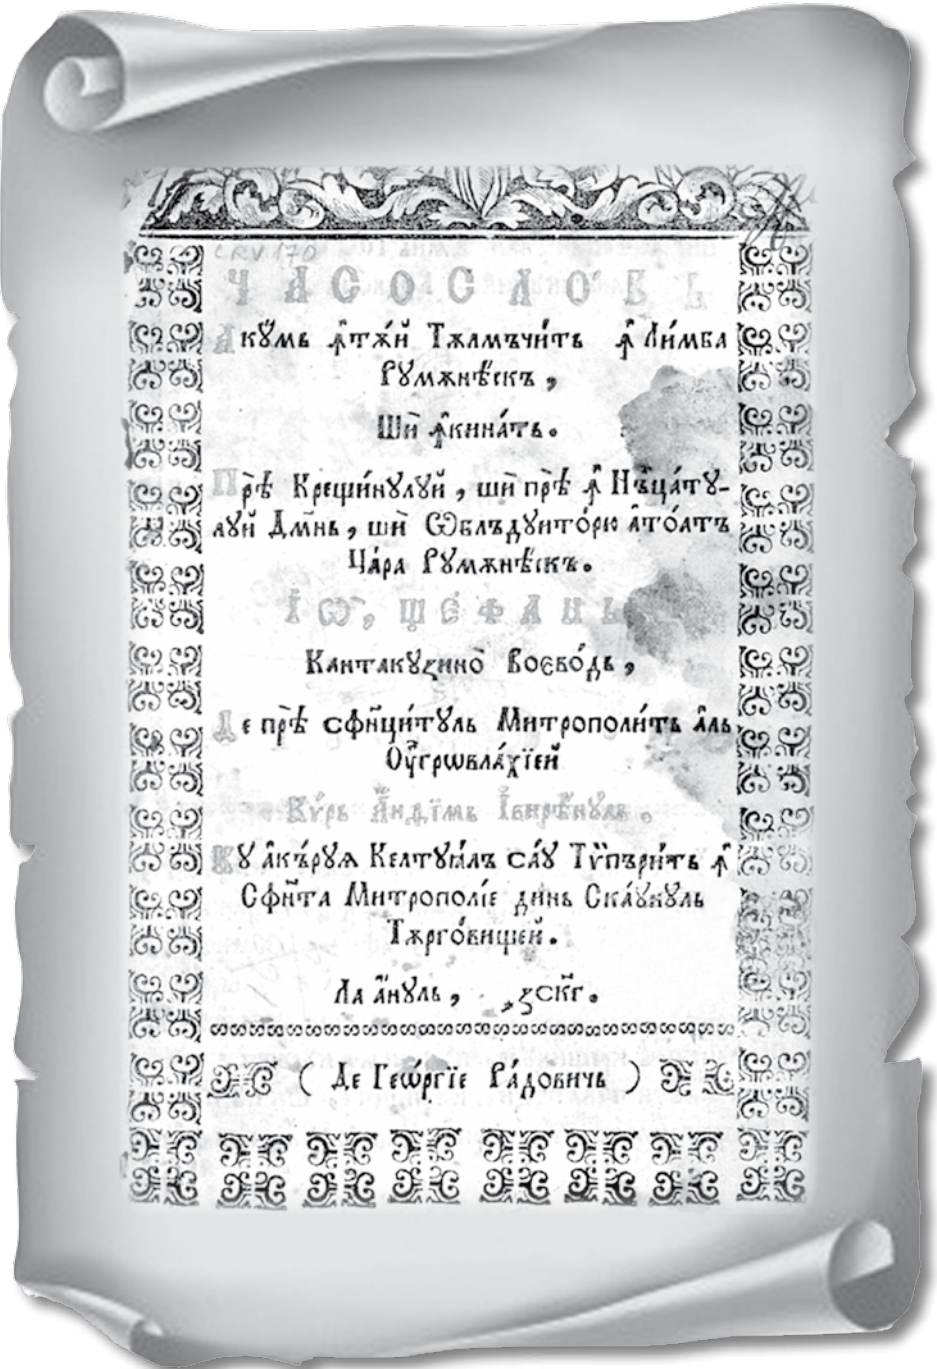 CRV 170
ЧАСОСЛОВЬ
Акꙋ́мь ꙟ҆тѫ́й Тѫлмъчи́ть ꙟ҆ Ли́мба
Рꙋмѫнѣ́скъ,
Шѝ ꙟ҆кина́ть.
Прѣ́ Крещи́нꙋлꙋй, шѝ прѣ́ ꙟ҆ Нъⷧ҇ца́тꙋ-
лꙋй Дмⷭ҇нь, шѝ Ѡблъдꙋито́рю а҆то́атъ
Ца́ра Рꙋмѫнѣ́скъ.
І҆ѡ, ЩЕФАНЬ
Кантакꙋзино̀ Воєво́дь,
Де прѣ́ сфн҃ци́тꙋль Митрополи́ть а҆ль
Оу҆гровла́хїей
Кѵ́рь А҆нѳїмь І҆вирѣ́нꙋль.
Кꙋ а҆къ́рꙋѧ Келтꙋѧ́лъ са́ꙋ Тѵпъри́ть ꙟ҆
Сфн҃та Митрополі́е динь Ска́ꙋнꙋль
Тѫрго́вищей.
Ла а҆́нꙋль, ҂зскг.
( Де Геѡ́ргїе Ра́довичь )